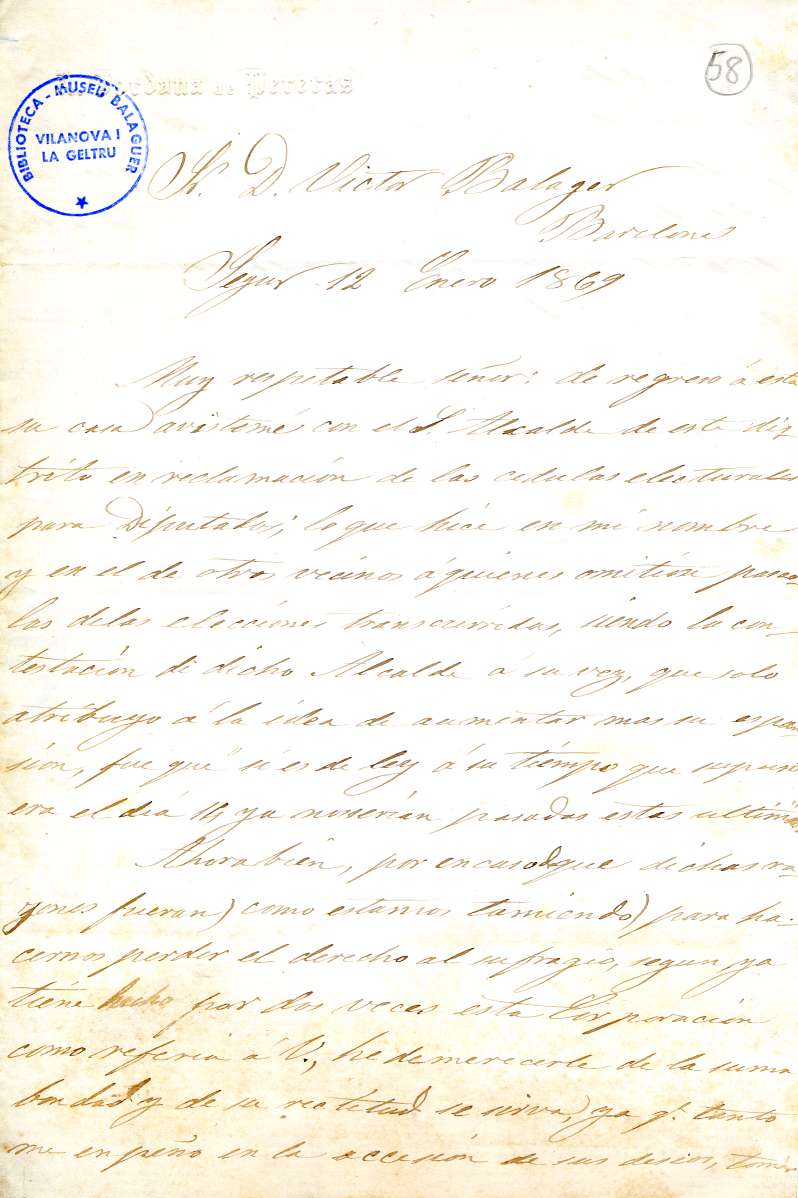 58
Jordana de Pereras
BIBLIOTECA - MUSEU BALAGUER
VILANOVA I
LA GELTRU
Sr. D. Victor Balager
Barcelona
Segur 12 Enero 1869
Muy respetable señor: de regreso á esta
su casa avistemé con el S. Alcalde de este dis
trito en reclamación de las cedulas electurales
para Diputados; lo que hice en mi nombre
y en el de otros vecinos á quienes omitión pasar
las delas elecciones transcurridas, siendo la con-
testación di dicho Alcalde á su vez, que solo
atribuyo á la idea de aumentar mas su espan
sión, fue que "si es de ley á su tiempo que
era el dia 14 ya noserian pasadas estas ultimas"
Ahorabien, por encasodque dichas ra-
zones fueran) como estamos tumiendo) para ha-
cernos perder el derecho al sufragio, segun ya
tiene hecho por dos veces esta Corporación
como referia á V., he demerecerle de la suma
bondad y de su rectitud se sirva, ya q.e tanto
me enpeño en la accesión de sus deseos, tomar